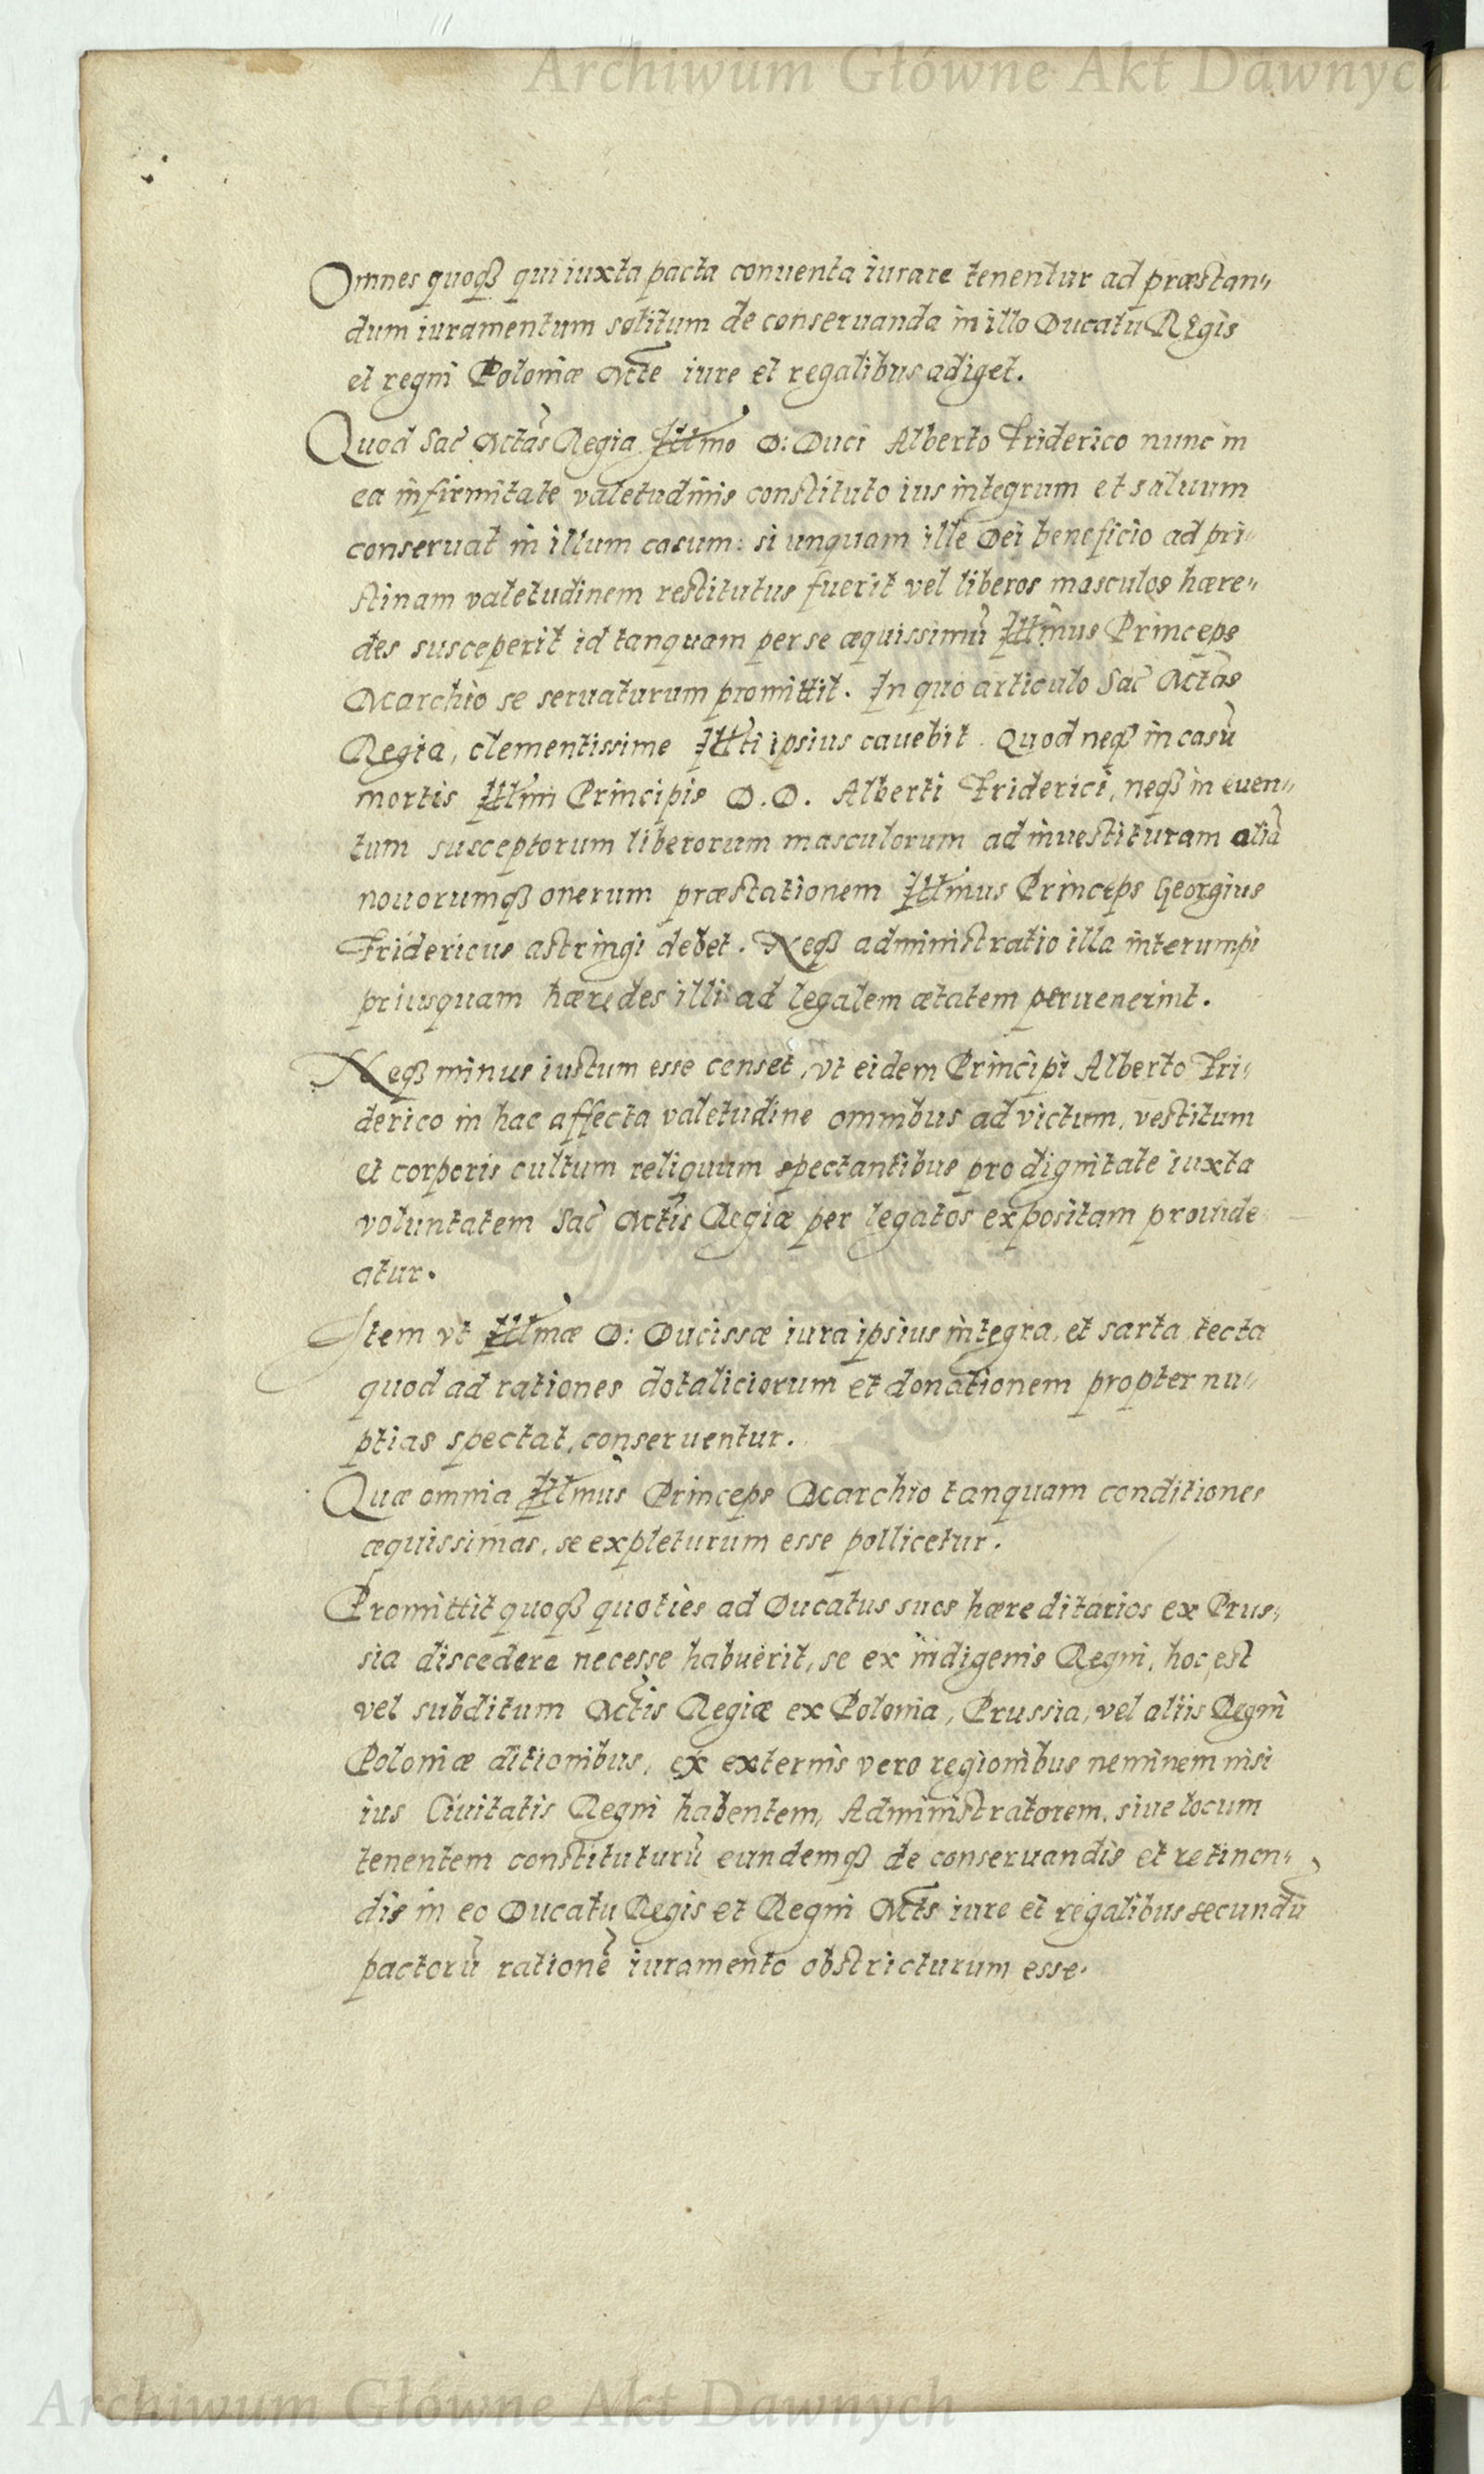 Archiwum Główne Akt Dawnych
Omnes quoqꝫ qui iuxta pacta conuenta iurare tenentur ad præstan„
dum iuramentum solitum de conseruanda in illo Ducatu REgis
et regni Poloniæ Mtte iure et regalibus adiget.
Quod Sac̃ Mctas̃ Regia Illmo D: Duci Alberto Friderico nunc in
ea infirmitate valetudinis constituto ius integrum et saluum
conseruat in illum casum: si unquam ille Dei beneficio ad pri„
stinam valetudinem restitutus fuerit vel liberos masculos hære„
des susceperit id tanquam per se æquissimũ Illm̃us Princeps
Marchio se seruaturum promittit. In quo articulo Sac̃ Mctas̃
Regia, clementissime Illti ipsius cauebit. Quod neqꝫ in casũ
mortis Illmi Principis D.D. Alberti Friderici, neqꝫ in euen„
tum susceptorum liberorum masculorum ad inuestituram aliã
nouorumqꝫ onerum præstationem Illmus Princeps Georgius
Fridericus astringi debet. Neqꝫ administratio illa interumpi
priusquam hæredes illi ad legalem ætatem peruenerint.
Neqꝫ minus iustum esse censet, vt eidem Principi Alberto Fri„
derico in hac affecta valetudine omnibus ad victum, vestitum
et corporis cultum reliquum spectantibus pro dignitate iuxta
voluntatem Sac̃ Mctis̃ Regiæ per legatos expositam prouide
atur.
Item vt Illmæ D: Ducissæ iura ipsius integra, et sarta tecta
quod ad rationes dotaliciorum et donationem propter nu„
ptias spectat, conseruentur.
Quæ omnia Illmus Princeps Marchio tanquam conditiones
æquissimas, se expleturum esse pollicetur.
Promittit quoqꝫ quoties ad Ducatus suos hæreditarios ex Prus„
sia discedere necesse habuerit, se ex indigenis Regni, hoc est
vel subditum Mctis̃ Regiæ ex Polonia, Prussia, vel aliis Regni
Poloniæ ditionibus, ex externis vero regionibus neminem nisi
ius Ciuitatis Regni habentem, Administratorem, siue locum
tenentem constituturũ eundemqꝫ de conseruandis et retinen„
dis in eo Ducatu Regis et Regni Mcts iure et regalibus secundũ
pactorũ rationẽ iuramento obstricturum esse.
Archiwum Główne Akt Dawnych